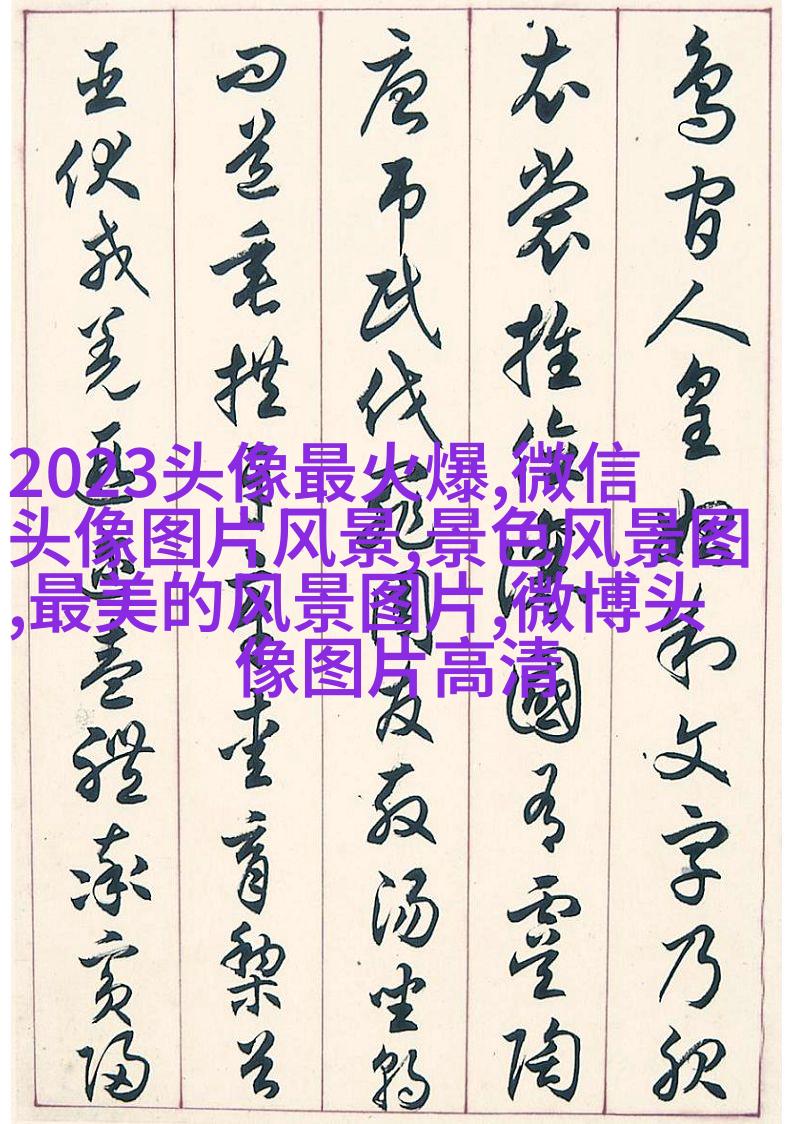 鳥官人皇始制文字乃服
衣裳推位讓國有虞陶
唐弔民伐罪周發殷湯坐朝
問道垂拱平章愛育黎首
臣伏戎羌遐邇壹體率賓歸
2023头像最火爆,微信
头像图片风景,景色风景图
,最美的风景图片,微博头
像图片高清